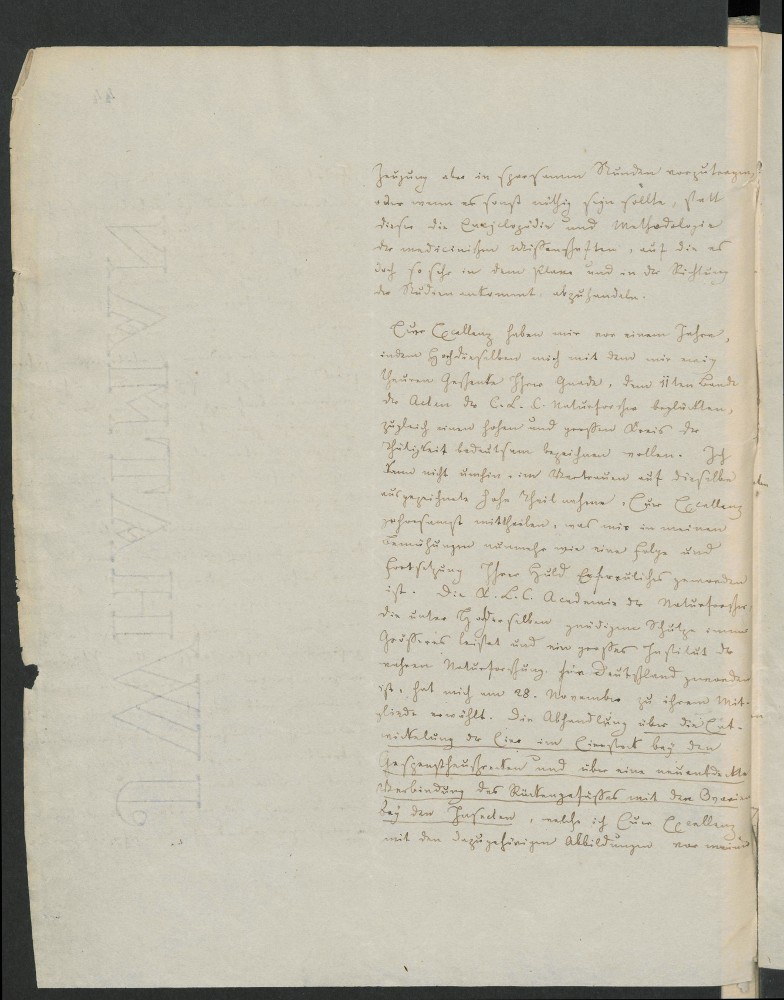 Zeugung aber in sparsamen Stunden vorzutragen,
oder wenn es sonst nöthig seyn sollte, statt
dieser die Encyclopädie und Methodologie
der medicinischen Wissenschaften, auf die es
doch so sehr in dem Plane und in der Richtung
der Studien ankommt, abzuhandeln.
Eure Excellenz haben mir vor einem Jahre,
indem Hochdieselben mich mit dem mir ewig
theuren Geschenke Ihrer Gnade, dem 11ten Bande
der Acten der C. L. C. Naturforscher beglückten,
zugleich einen hohen und großen Kreis der
Thätigkeit bedeutsam bezeichnen wollen. Ich
kann nicht umhin, im Vertrauen auf dieselbe
ausgezeichnete hohe Theilnahme, Eure Excellenz
gehorsamst mittheilen, was mir in meinen
Bemühungen nunmehr wie eine Folge und
Fortsetzung Ihrer Huld Erfreuliches geworden
ist. Die K. L. C. Academie der Naturforscher,
die unter Hochderselben gnädigem Schutze immer
Größeres leistet und ein großes Institut der
wahren Naturforschung für Deutschland geworden
ist, hat mich am 28. November zu ihrem Mit-
gliede erwählt. Die Abhandlung über die Ent-
wickelung der Eier im Eierstock bey den
Gespenstheuschrecken und über eine neuentdeckte
Verbindung des Rückengefäßes mit den Ovarien
bey den Insecten, welche ich Eure Excellenz
mit den dazugehörigen Abbildungen vor meiner